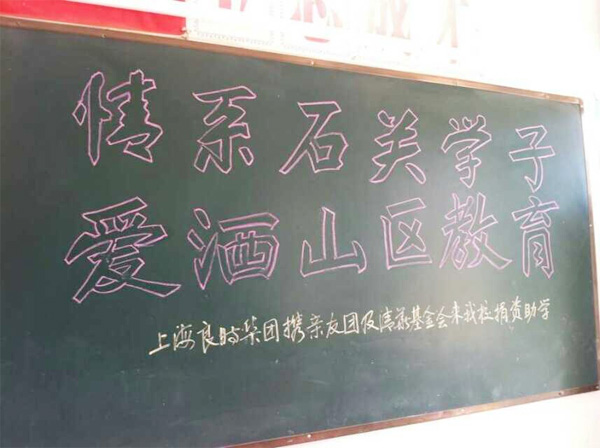 情系石关学子
爱洒山区教育
上海良时集团携亲友团及清基金会来我校捐资助学